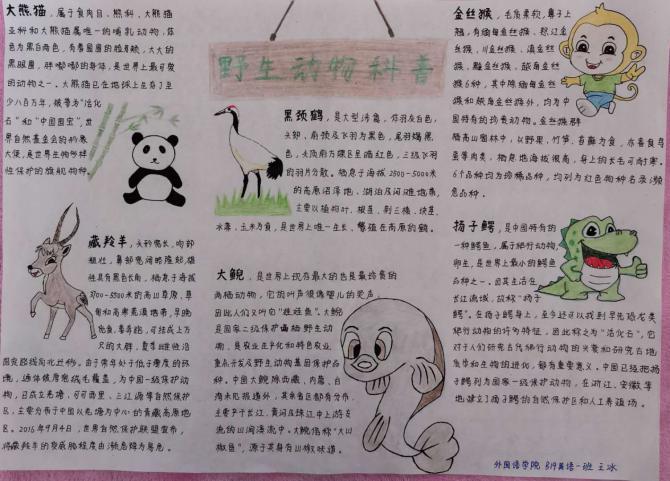 野生动物科普
大熊猫，属于食肉目、熊科、大熊猫
亚科和大熊猫属唯一的哺乳动物，体
色为黑白两色，有着圆圆的脸颊，大大的
黑眼圈，胖嘟嘟的身体，是世界上最可爱
的动物之一。大熊猫已在地球上生存了至
少八百万年，被誉为“活化
石”和“中国国宝”，世
界自然基金会的形象
大使，是世界生物多样
性保护的旗舰物种。
黑颈鹤，是大型涉禽，体羽灰白色，
头部、前颈及飞羽为黑色，尾羽褐黑
色，头顶前方裸区呈暗红色，三级飞羽
的羽片分散。栖息于海拔2500-5000米
的高原沼泽地、湖泊及河滩地带，
主要以植物叶、根茎、荆三棱、块茎、
水藻、玉米为食，是世界上唯一生长、繁殖在高原的鹤。
金丝猴，毛质柔软，鼻子上
翘，有缅甸金丝猴、怒江金
丝猴、川金丝猴、滇金丝
猴、黔金丝猴、越南金丝
猴6种，其中除缅甸金丝
猴和越南金丝猴外，均为中
国特有的珍贵动物。金丝猴群
栖高山密林中，以野果、竹笋、苔藓为食，亦喜食鸟
蛋等肉类，栖息地海拔很高，身上的长毛可耐寒。
6个品种均为珍稀品种，均列为红色物种名录濒
危品种。
藏羚羊，头形宽长，吻部
粗壮，鼻部宽阔略隆起，雄
性具有黑色长角，栖息于海拔
3700-5500米的高山草原、草
甸和高寒荒漠地带，早晚
觅食，善奔跑，可结成上万
只的大群，夏季雌性沿
固定路线向北迁移。由于常年处于低于零度的环
境，通体被厚密绒毛覆盖，为中国一级保护动
物，已成立羌塘、可可西里、三江源等自然保护
区，主要分布于中国以羌塘为中心的青藏高原地
区。2016年9月4日，世界自然保护联盟宣布，
将藏羚羊的受威胁程度由濒危降为易危。
大鲵，是世界上现存最大的也是最珍贵的
两栖动物，它的叫声很像婴儿的哭声，
因此人们又叫它“娃娃鱼”。大鲵
是国家二级保护两栖野生动
物，是农业产业化和特色农业
重点开发及野生动物基因保护品
种。中国大鲵除西藏、内蒙、台
湾未见报道外，其余省区都有分布，
主要产于长江、黄河及珠江中上游支
流的山涧溪流中。大鲵俗称“大山
椒鱼”，源于其身有山椒味道。
扬子鳄，是中国特有的
一种鳄鱼，属于爬行动物，
卵生，是世界上最小的鳄鱼
品种之一。因其生活在
长江流域，故称“扬子
鳄”。在扬子鳄身上，至今还可以找到早先恐龙类
爬行动物的许多特征，因此称之为“活化石”，它
对于人们研究古代爬行动物的兴衰和研究古地
质学和生物的进化，都有重要意义。中国已经把扬
子鳄列为国家一级保护动物，在浙江、安徽等
地建立了扬子鳄的自然保护区和人工养殖场。
外国语学院 B19英语一班 王冰